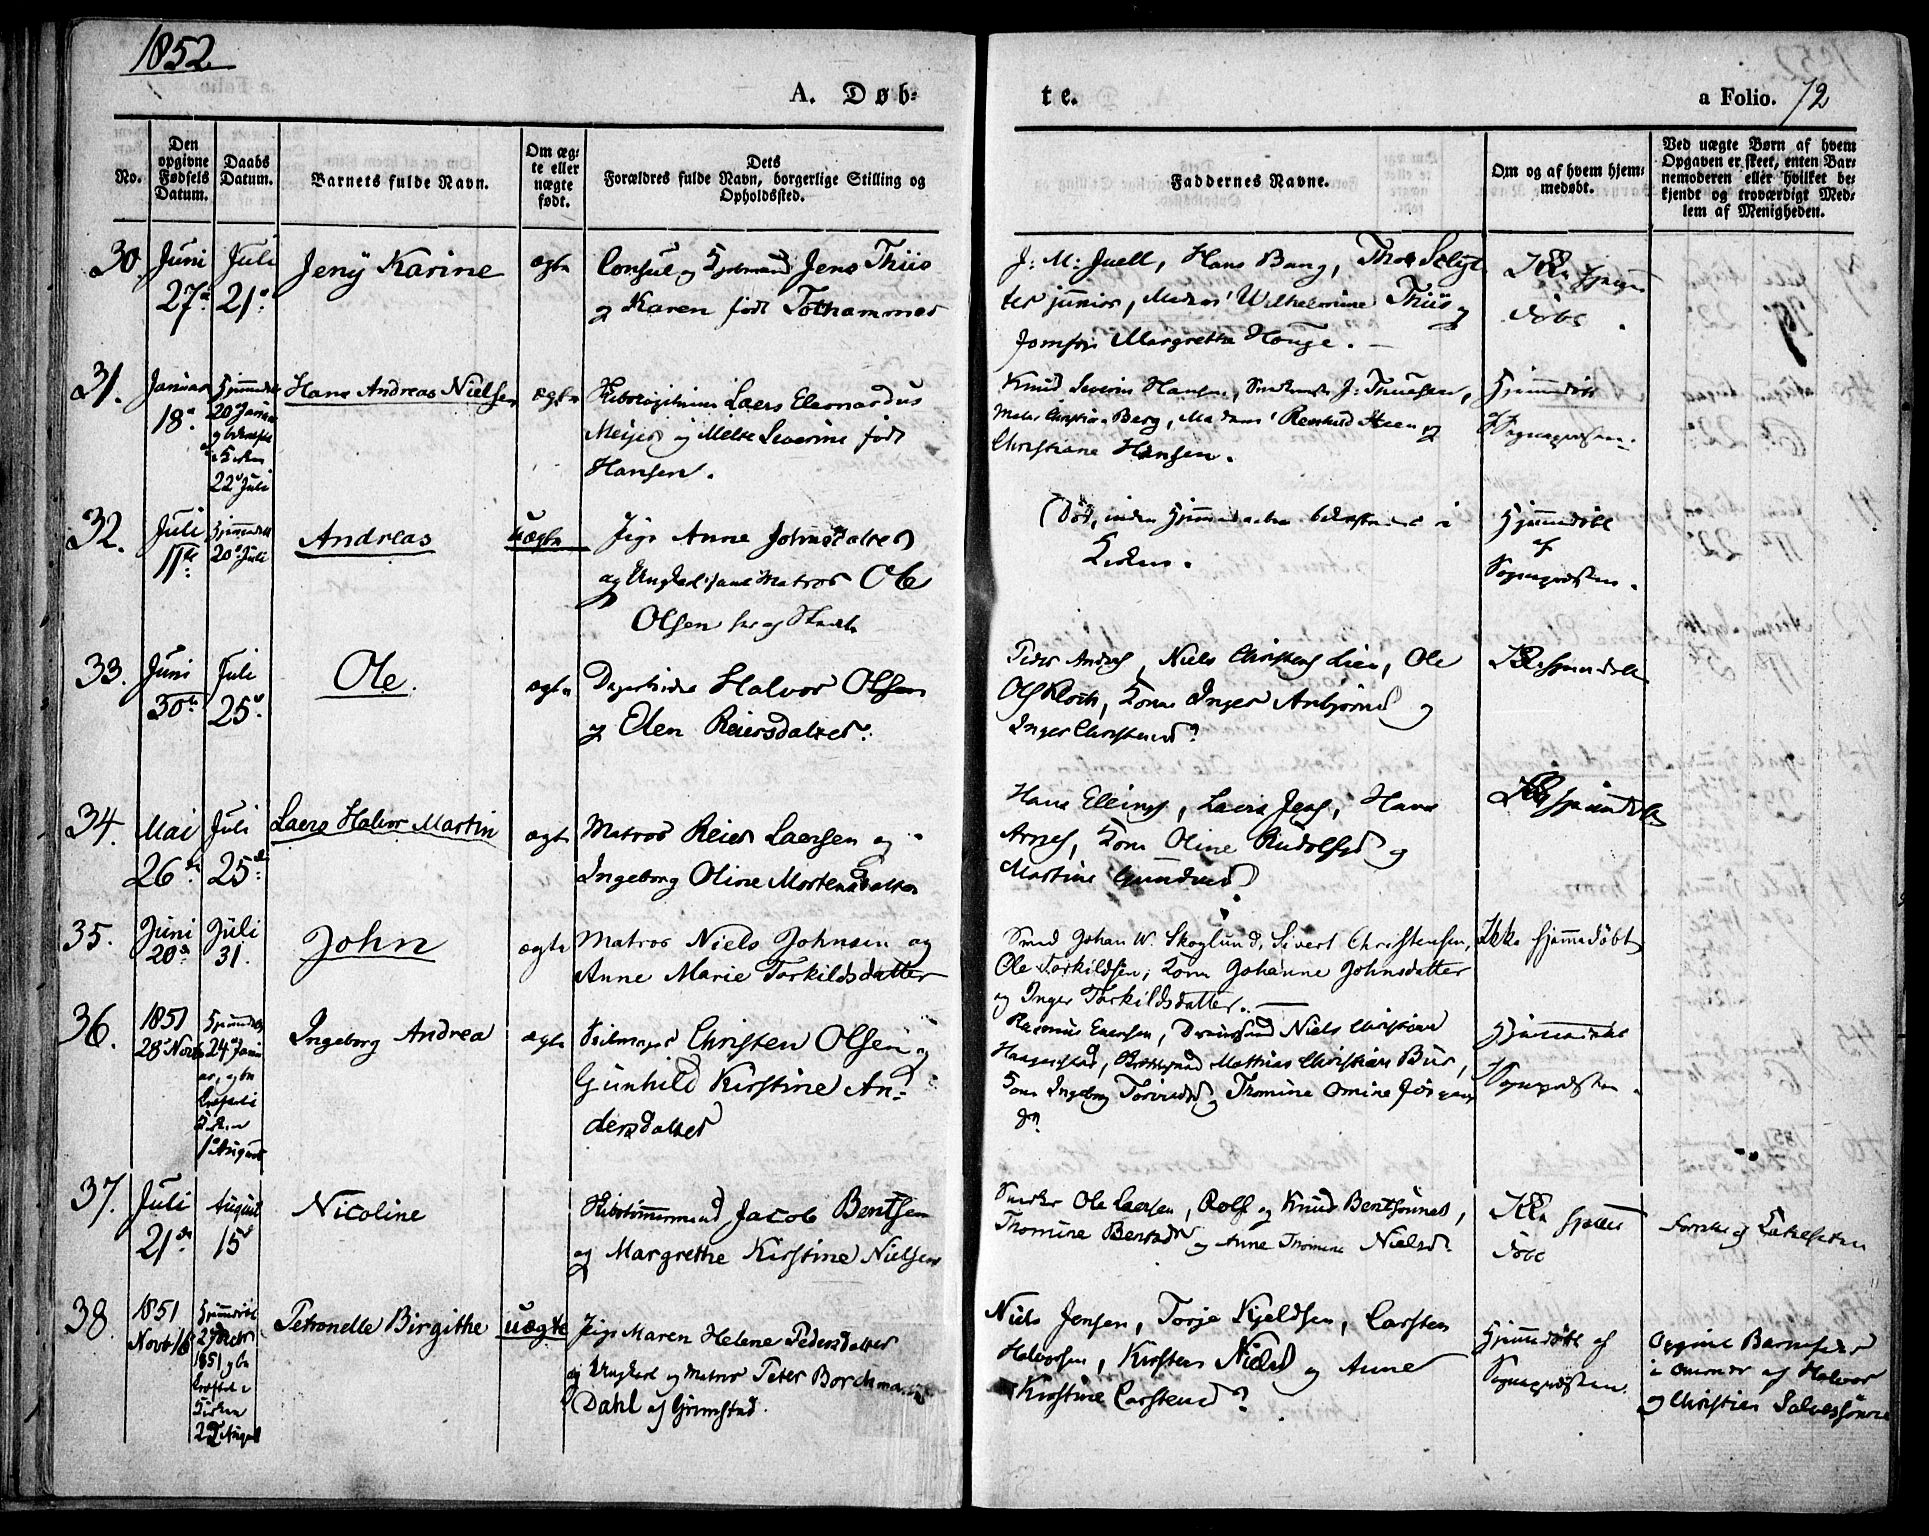 1852
A. Døb-
te.
a Folio. 72
No.
Den
opgivne
Fødsels
Datum.
Daabs
Datum.
Barnets fulde Navn.
Om æg-
te eller
uægte
født.
Dets
Forældres fulde Navn, borgerlige Stilling og
Opholdssted.
Faddernes Navne.
Om og af hvem hjem-
medøbt.
Ved uægte Børn af hvem
Opgaven er skeet, enten Bar-
nemoderen eller hvilket be-
kjendt og troværdigt Med-
lem af Menigheden.
30.
Juni
27de
Juli
21de
Jeny Karine
ægte
Consul og Kjøbmand Jens Thiis
og Karen født
J: M: Juell, Hans Bang,
ter junior, Madam Wilhelmine Thiis og
Jomfru Margrethe Houge.
Ikke hjemme
døbt.
31.
Januar
18de
Hjemmedøbt
20de Januar
Kirken
22de Juli
Hans Andreas Nielsen
ægte
Lars Eleonardus
Meyer og Mette Severine født
Hansen.
Knud Severin Hansen, J: Thuesen,
Christian Berg, Madam
Christiane Hansen.
Hjemmedøbt
Sognepræsten.
32.
Juli
11te
Hjemmedøbt
20de Juli
Andreas
uægte
Pige Anne Johnsdatter
og Ungkarl Matros Ole
Olsen her af Stedet
(Død, inden Hjemmedaaben bekræftedes i
Kirken.
Hjemmedøbt
af
Sognepræsten.
33.
Juni
30te
Juli
25de
Ole.
ægte
Halvor Olsen
og Elen Reiersdatter.
Peder Niels Christens Lien, Ole
Kone Inger Anbjørnsd og
Inger Christensd?
Ikke hjemmedøbt
34.
Mai
26de
Juli
25de
Lars Halvor Martin
ægte
Matros Reier Larsen og
Ingeborg Oline Mortensdatter
Hans Ellings, Lars Jens, Hans
Kone Oline Rudolfsd og
Martine Gundersd
Ikke hjemmedøbt
35.
Juni
20de
Juli
31.
John
ægte
Matros Niels Johnsen og
Anne Marie Torkildsdatter
Smed Johan W. Skoglund, Sivert Christensen,
Ole Torkildsen, Kone Johanne Johnsdatter
og Inger Torkildsdatter.
Ikke hjemmedøbt
36.
1851
28de Novb
Hjemmedøbt
24de Janu
ar, og be
kræftet i
Kirken
1ste August
Ingeborg Andrea
ægte
Seilmager Christen Olsen og
Gunhild Kirstine An-
dersdatter
Rasmus Evensen, Niels Christian
Mathias Christian Bue,
Kone Ingeborg og Thomine
Hjemmedøbt
Sognepræsten.
37.
Juli
21de
August
15de
Nicoline
Skibstømmermand Jacob Bentsen
og Margrethe Kirstine Nielsen
Ole Larsen, Rolf og Knud Bentsønner,
Thomine Bentsd og Anne Thomine Nielsd.
Ikke hjemme
døbt
38.
1851
Novb 16
Hjemmedøbt
1851 og be
kræftet i
Kirken
22de August
Petronelle Birgithe
uægte
Pige Maren Helene Pedersdatter
og Ungkarl og Matros Peter Borchmann
Dahl af Grimstad.
Niels Jensen, Torje Kjeldsen, Carsten
Halvorsen, Kirsten Nielsd og Anne
Kirstine Carstensd?
Hjemmedøbt af
Sognepræsten.
Opgivet Barnefader
i af Halvor
og Christian Salvesønner